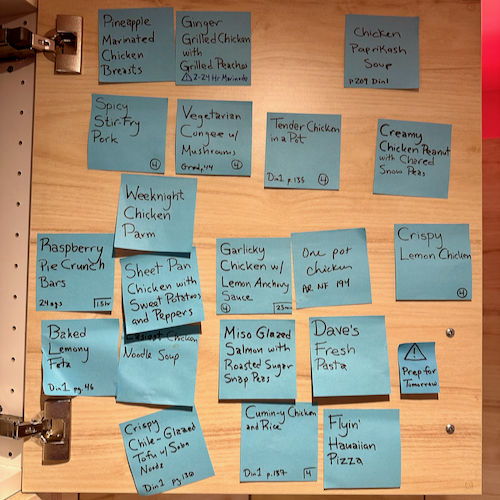 Pineapple
Marinated
Chicken
Breasts
Ginger
Grilled Chicken
with
Grilled Peaches
⚠ 2-24 Hr Marinate
Chicken
Paprikash
Soup
p209 Din1
Spicy
Stir-Fry
Pork
4
Vegetarian
Congee w/
Mushrooms
44
4
Tender Chicken
in a Pot
Din1 p.135
4
Creamy
Chicken Peanut
with Charred
Snow Peas
Weeknight
Chicken
Parm
Raspberry
Pie Crunch
Bars
Sheet Pan
Chicken with
Sweet Potatoes
and Peppers
Garlicky
Chicken w/
Lemon Anchovy
Sauce
4
One pot
chicken
NF 194
Crispy
Lemon Chicken
4
Baked
Lemony
Feta
Din1 pg.46
Easiest Chicken
Noodle Soup
Miso Glazed
Salmon with
Roasted Sugar
Snap Peas
Dave's
Fresh
Pasta
Prep for
Tomorrow
Crispy
Chile-Glazed
Tofu w/ Soba
Din1 pg.130
Cumin-y Chicken
and Rice
Din1 p.137
4
Flyin'
Hawaiian
Pizza